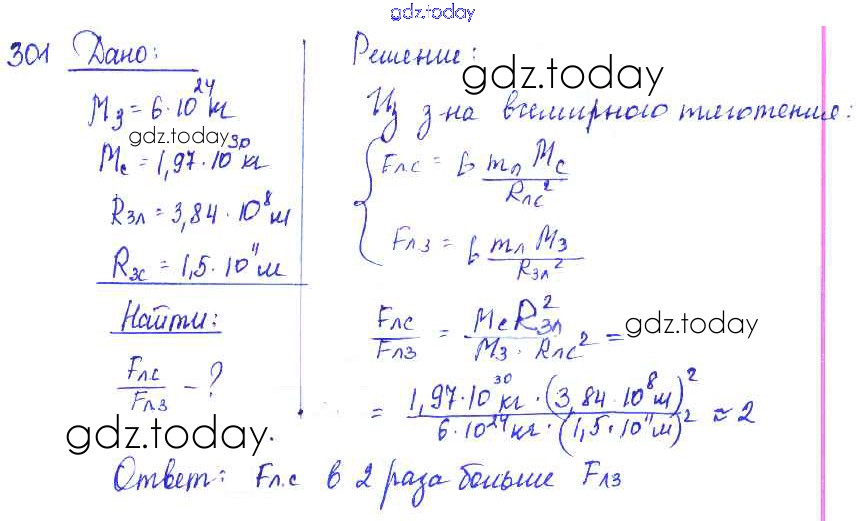 gdz.today
301 Дано:
Mз = 6·10²⁴ кг
gdz.today
Mс = 1,97·10³⁰ кг
Rзл = 3,84·10⁸ м
Rзс = 1,5·10¹¹ м
Найти:
Fлс/Fлз - ?
gdz.today
Решение:
gdz.today
Из з-на всемирного тяготения:
Fлс = G mл Mс / Rлс²
Fлз = G mл Mз / Rзл²
Fлс/Fлз = Mс R²зл / Mз · Rлс² =
gdz.today
= 1,97·10³⁰ кг · (3,84·10⁸ м)² / 6·10²⁴ кг · (1,5·10¹¹ м)² ≈ 2
Ответ: Fл.с в 2 раза больше Fлз